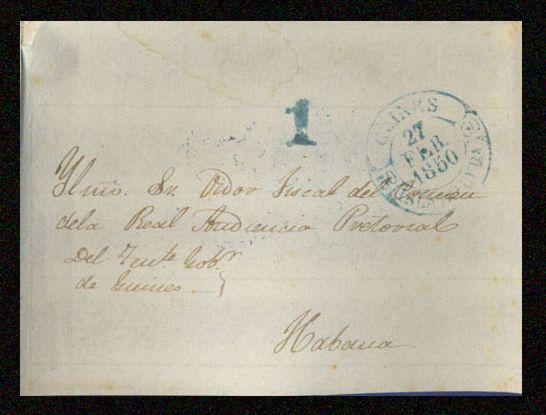 1
GUINES
27
FEB.
1850
ISLA DE CUBA
Yllmo. Sr. Oidor Fiscal del Crimen
dela Real Audiencia Pretorial
Del Tente Gobr
de Guines
Habana